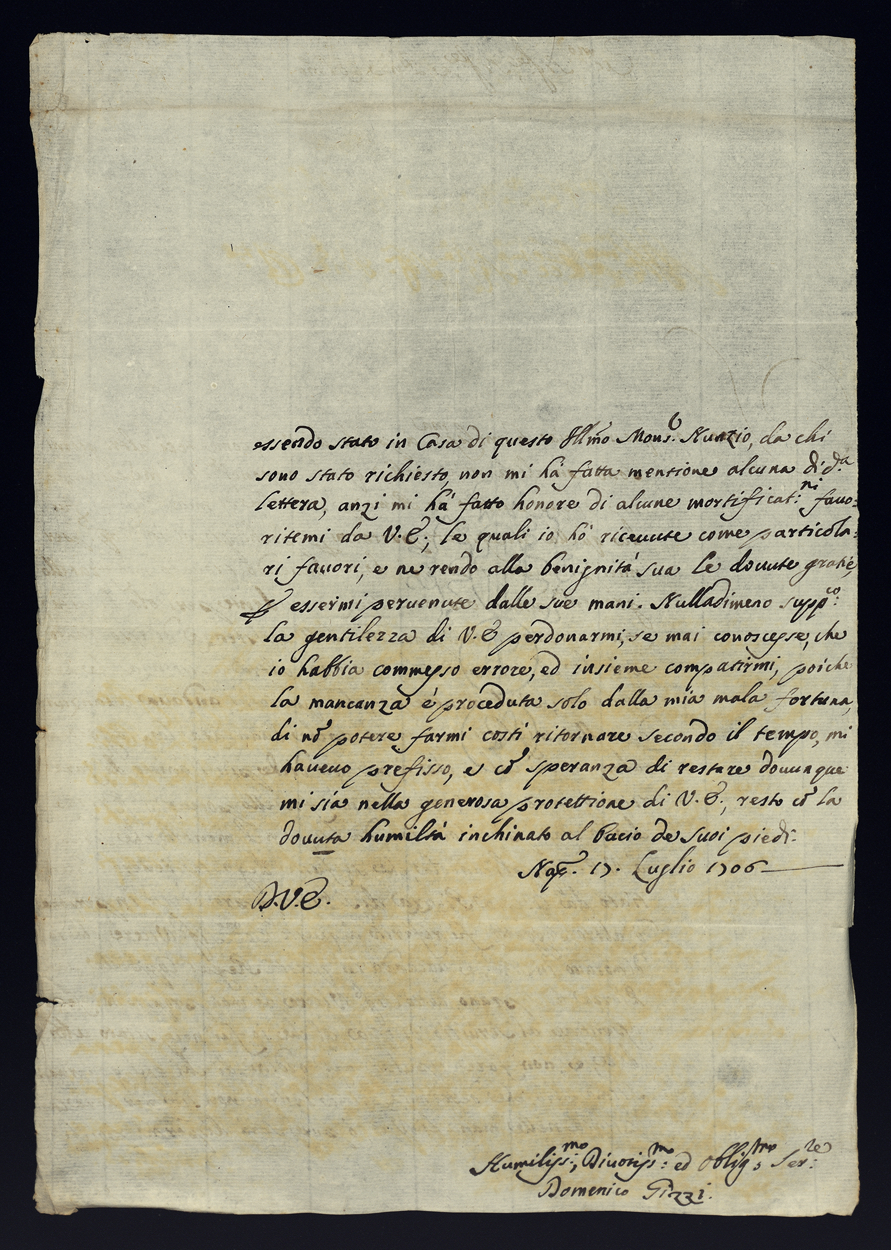 essendo stato in Casa di questo Ill:mo Mons:r Nunzio, da chi
sono stato richiesto, non mi hà fatta mentione alcuna di d:a
lettera, anzi mi hà fatto honore di alcune mortificat:ni favo=
ritemi da V.E., le quali io hò riceuute come particola=
ri fauori, e ne rendo alla benignità sua le douute gratie,
p essermi peruenute dalle sue mani. Nulladimeno supp:co
la gentilezza di V.E. perdonarmi, se mai conoscesse, che
io habbia commesso errore, ed insieme compatirmi, poiche
la mancanza è proceduta solo dalla mia mala fortuna,
di nō potere farmi costi ritornare secondo il tempo, mi
haueuo prefisso, e cō speranza di restare douunque
mi sia nella generosa protettione di V.E., resto cō la
douuta humiltà inchinato al bacio de Suoi piedi:
Nap. 17. Luglio 1706
D.V.E.
Humiliss:mo, Diuotiss:mo ed Oblig:mo Ser:re
Domenico Gizzi.